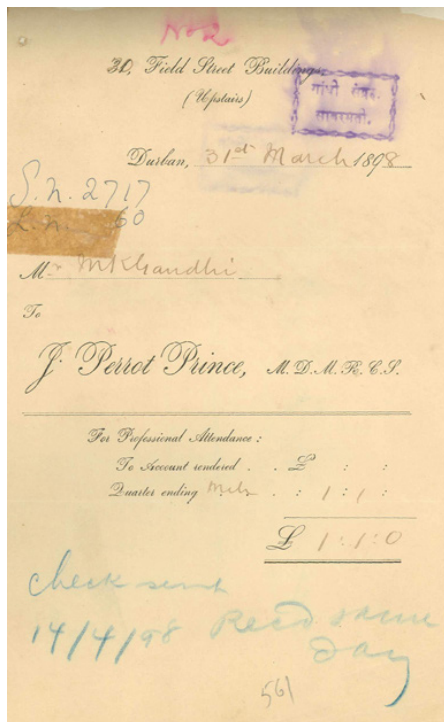 No 2
30, Field Street Buildings,
(Upstairs)
गांधी संग्रह
साबरमती.
Durban, 31st March 1898
S.N. 2717
60
Mr MKGandhi
To
J. Perrot Prince, M.D.M.R.C.S.
For Professional Attendance:
To Account rendered . . £ : :
Quarter ending Mch . : 1 : 1 :
£ 1 : 1 : 0
check sent
14/4/98 Recd same
day
561